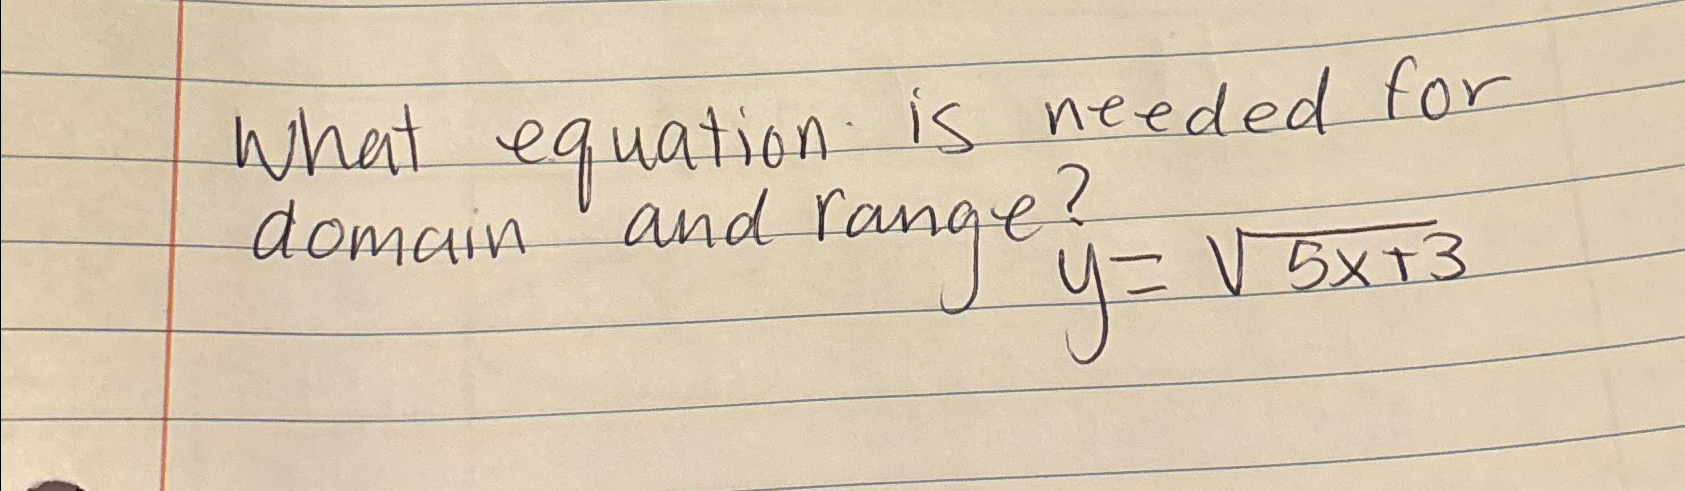 What equation is needed for
domain and range?
y = √5x+3